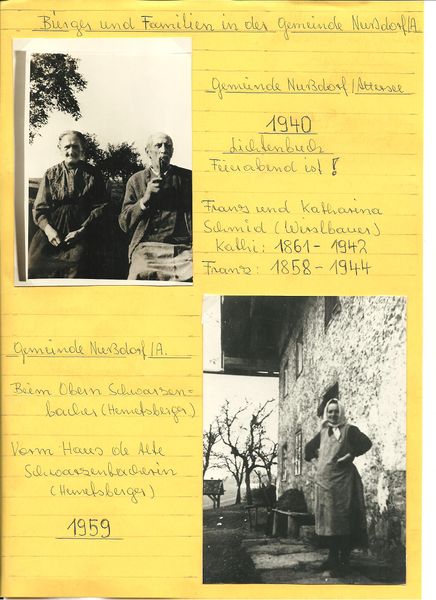 Bürger und Familien in der Gemeinde Nußdorf/A
Gemeinde Nußdorf/Attersee
1940
Lichtenbuch
Feierabend ist!
Franz und Katharina
Schmid (Wirslbauer)
Kathi: 1861 - 1942
Franz: 1858 - 1944
Gemeinde Nußdorf/A.
Beim Obern Schwarzen=
bacher (Hemetsberger)
Vorm Haus de Alte
Schwarzenbacherin
(Hemetsberger)
1959